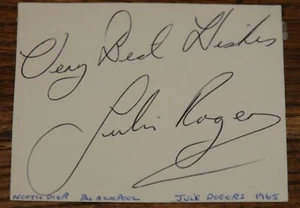 Very Best Wishes
Julie Rogers
BLACKPOOL JULIE ROGERS 1965